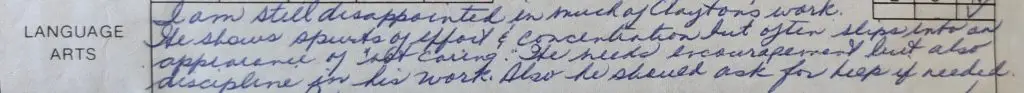 LANGUAGE
ARTS
I am still disappointed in much of Clayton's work.
He shows spurts of effort & concentration but often slips into an
appearance of "not caring." He needs encouragement but also
discipline in his work. Also he should ask for help if needed.